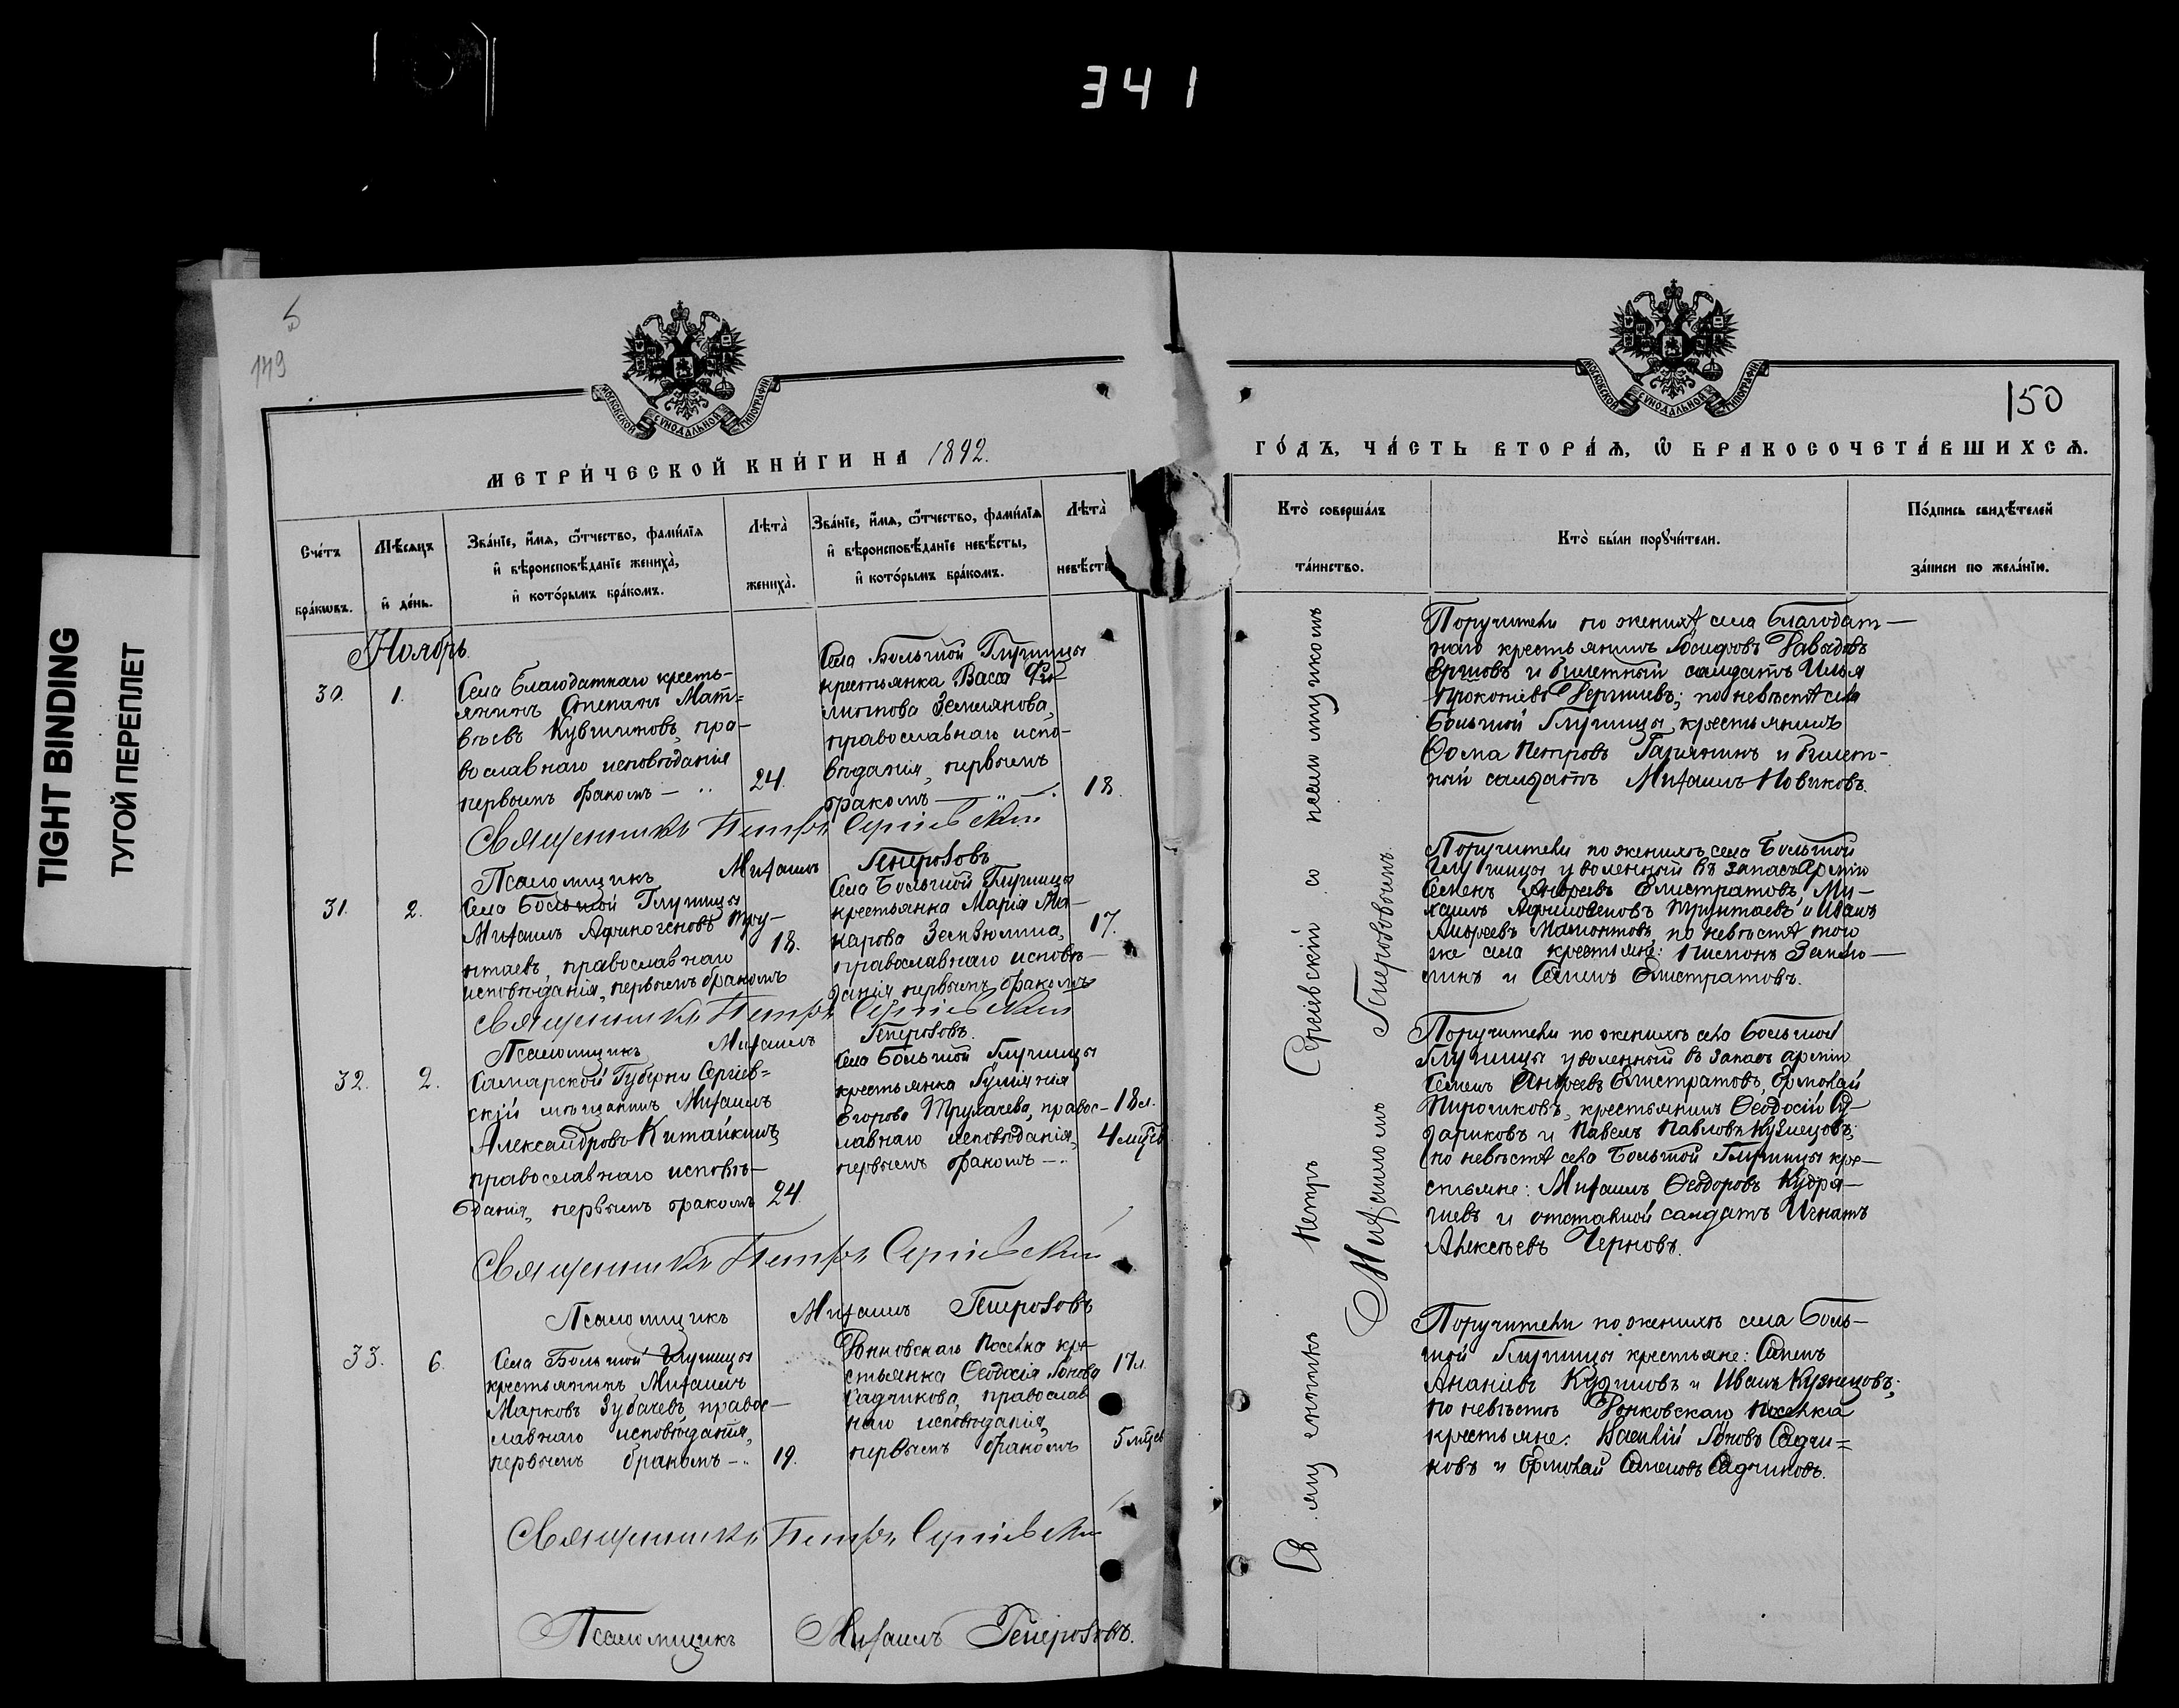 341
TIGHT BINDING
ТУГОЙ ПЕРЕПЛЕТ
5
149
МОСКОВСКОЙ СѴНОДАЛЬНОЙ ТИПОГРАФІИ
МЕТРИ́ЧЕСКОЙ КНИ́ГИ НА 1892.
Сче́тъ бра́кѡвъ.
Мѣ́сяцъ и҆ де́нь.
Зва́нїе, и҆́мѧ, ѻ҆́тчество, фами́лїѧ
и҆ вѣроисповѣ́данїе жениха̀,
и҆ кото́рымъ бра́комъ.
Лѣта̀ жениха̀.
Зва́нїе, и҆́мѧ, ѻ҆́тчество, фами́лїѧ
и҆ вѣроисповѣ́данїе невѣ́сты,
и҆ кото́рымъ бра́комъ.
Лѣта̀
Ноябрь.
30.
1.
Села Благодатнаго кресть-
янинъ Степанъ Мат=
вѣевъ Кувшиновъ, пра-
вославнаго исповѣданія
первымъ бракомъ —
24.
Села Большой Глушицы
крестьянка Васса Фи-
липпова Землянова,
православнаго испо-
вѣданія, первымъ
бракомъ —
18.
Священникъ Петръ Сергіевскій
Псаломщикъ Михаилъ Генерозовъ
31.
2.
Села Большой Глушицы
Михаилъ Афиногеновъ Тру-
нтаевъ, православнаго
исповѣданія, первымъ бракомъ
18.
Села Большой Глушицы
крестьянка Марія Ма-
карова
православнаго исповѣ-
данія, первымъ бракомъ
17.
Священникъ Петръ Сергіевскій
Псаломщикъ Михаилъ Генерозовъ.
32.
2.
Самарской Губерни Сергіев=
скій мѣщанинъ Михаилъ
Александровъ Китайкинъ
православнаго исповѣ-
данія, первымъ бракомъ
24.
Села Большой Глушицы
крестьянка
Егорова Трухачева, правос-
лавнаго исповѣданія,
первымъ бракомъ —
18 л.
4 мѣс
Священникъ Петръ Сергіевскій
Псаломщикъ Михаилъ Генерозовъ
33.
6.
Села Большой Глушицы
крестьянинъ Михаилъ
Марковъ Зубачевъ, правос-
лавнаго исповѣданія,
первымъ бракомъ —
19.
поселка кре-
стьянка Ѳеодосія
Садчикова, православ
наго исповѣданія,
первымъ бракомъ
17 л.
Священникъ Петръ Сергіевскій
Псаломщикъ Михаилъ Генерозовъ.
МОСКОВСКОЙ СѴНОДАЛЬНОЙ ТИПОГРАФІИ
150
ГО́ДЪ, ЧА́СТЬ ВТОРА́Ѧ, Ѡ҆ БРАКОСОЧЕТА́ВШИХСѦ.
Кто̀ соверша́лъ
та́инство.
Кто̀ бы́ли порꙋчи́тели.
По́дпись свидѣ́телей
за́писи по жела́нїю.
Петръ Сергіевскій со псаломщикомъ
Михаиломъ Генерозовымъ.
Поручители по женихѣ села Благодат-
наго крестьянинъ
Ершовъ и билетный солдатъ Илья
по невѣстѣ села
Большой Глушицы, крестьянинъ
Ѳома Петровъ и билет-
ный солдатъ Михаилъ Новиковъ.
Поручители по женихѣ села Большой
Глушицы уволенный въ запасъ Арміи
Семенъ Андреевъ Елистратовъ, Ми-
хаилъ и Иванъ
Андреевъ Мамонтовъ, по невѣстѣ того
же села крестьяне:
и Семенъ Елистратовъ.
Поручители по женихѣ села Большой
Глушицы уволенный въ запасъ арміи
Семенъ Андреевъ Елистратовъ, Ермолай
крестьянинъ Ѳеодосій
и Павелъ Павловъ Кузнецовъ;
по невѣстѣ села Большой Глушицы кре-
стьяне: Михаилъ Ѳеодоровъ Кудря-
шевъ и отставной солдатъ Игнатъ
Алексѣевъ Черновъ.
Поручители по женихѣ села Боль-
шой Глушицы крестьяне: Семенъ
Ананіевъ и Иванъ Кузнецовъ;
по невѣстѣ поселка
крестьяне: Василій Садчи=
ковъ и Ермолай Семеновъ Садчиковъ.